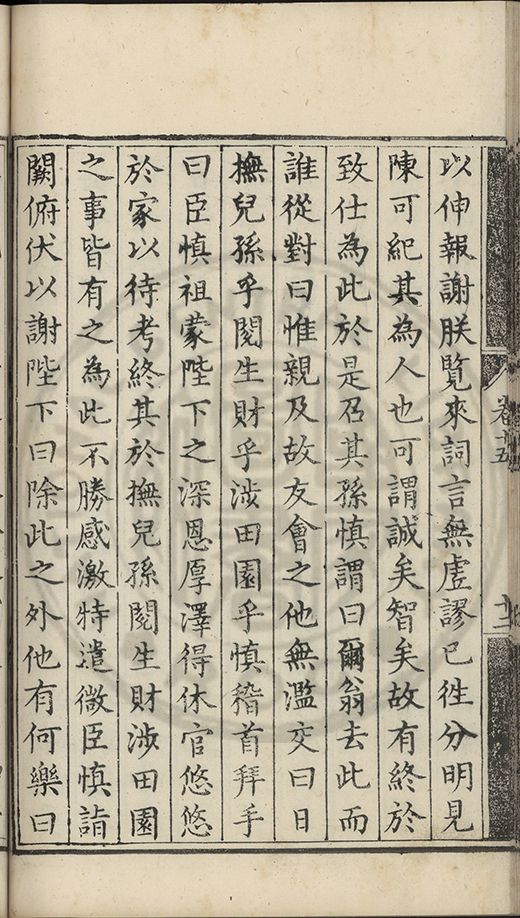 卷十五
十二
以伸報謝朕覧來詞言無虗謬已徃分明見
陳可紀其為人也可謂誠矣智矣故有終於
致仕為此於是召其孫慎謂曰爾翁去此而
誰從對曰惟親及故友會之他無濫交曰日
撫兒孫乎閱生財乎涉田園乎慎稽首拜手
曰臣慎祖蒙陛下之深恩厚澤得休官悠悠
於家以待考終其於撫兒孫閱生財涉田園
之事皆有之為此不勝感激特遣微臣慎詣
闕俯伏以謝陛下曰除此之外他有何樂曰